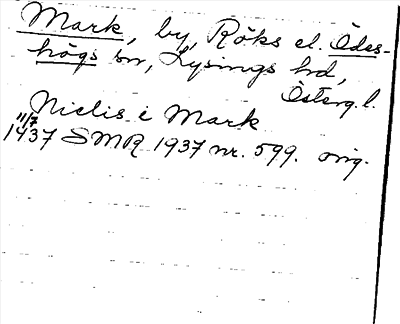 Mark, by, Röks el. Ödes-
högs sn, Lysings hd,
Österg. l.
Nielis i Mark
11/7
1437 SMR 1937 nr. 599. orig.